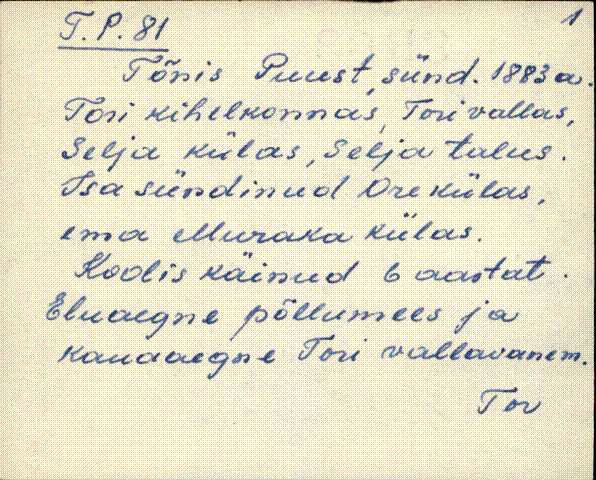 T. P. 81
1
Tõnis Puust, sünd. 1883 a.
Tori kihelkonnas, Tori vallas,
Selja külas, Selja talus.
Isa sündinud Ore külas,
ema Muraka külas.
Koolis käinud 6 aastat.
Eluaegne põllumees ja
kauaaegne Tori vallavanem.
Tor